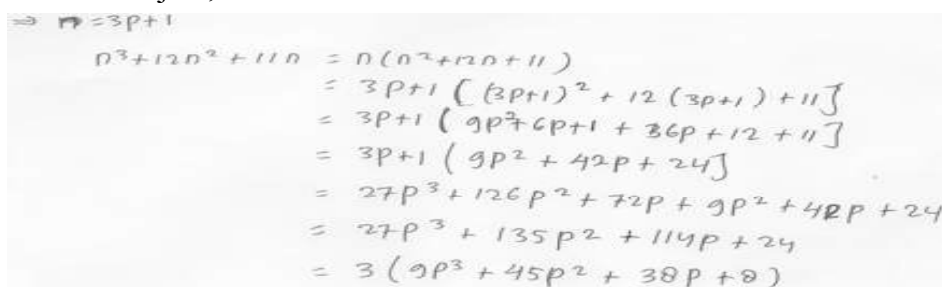 ⇒ n = 3p+1
n³+12n²+11n = n(n²+12n+11)
= 3p+1 ( (3p+1)² + 12 (3p+1) + 11]
= 3p+1 ( 9p²+6p+1 + 36p + 12 + 11]
= 3p+1 ( 9p² + 42p + 24]
= 27p³ + 126p² + 72p + 9p² + 42p + 24
= 27p³ + 135p² + 114p + 24
= 3 (9p³ + 45p² + 38p + 8)